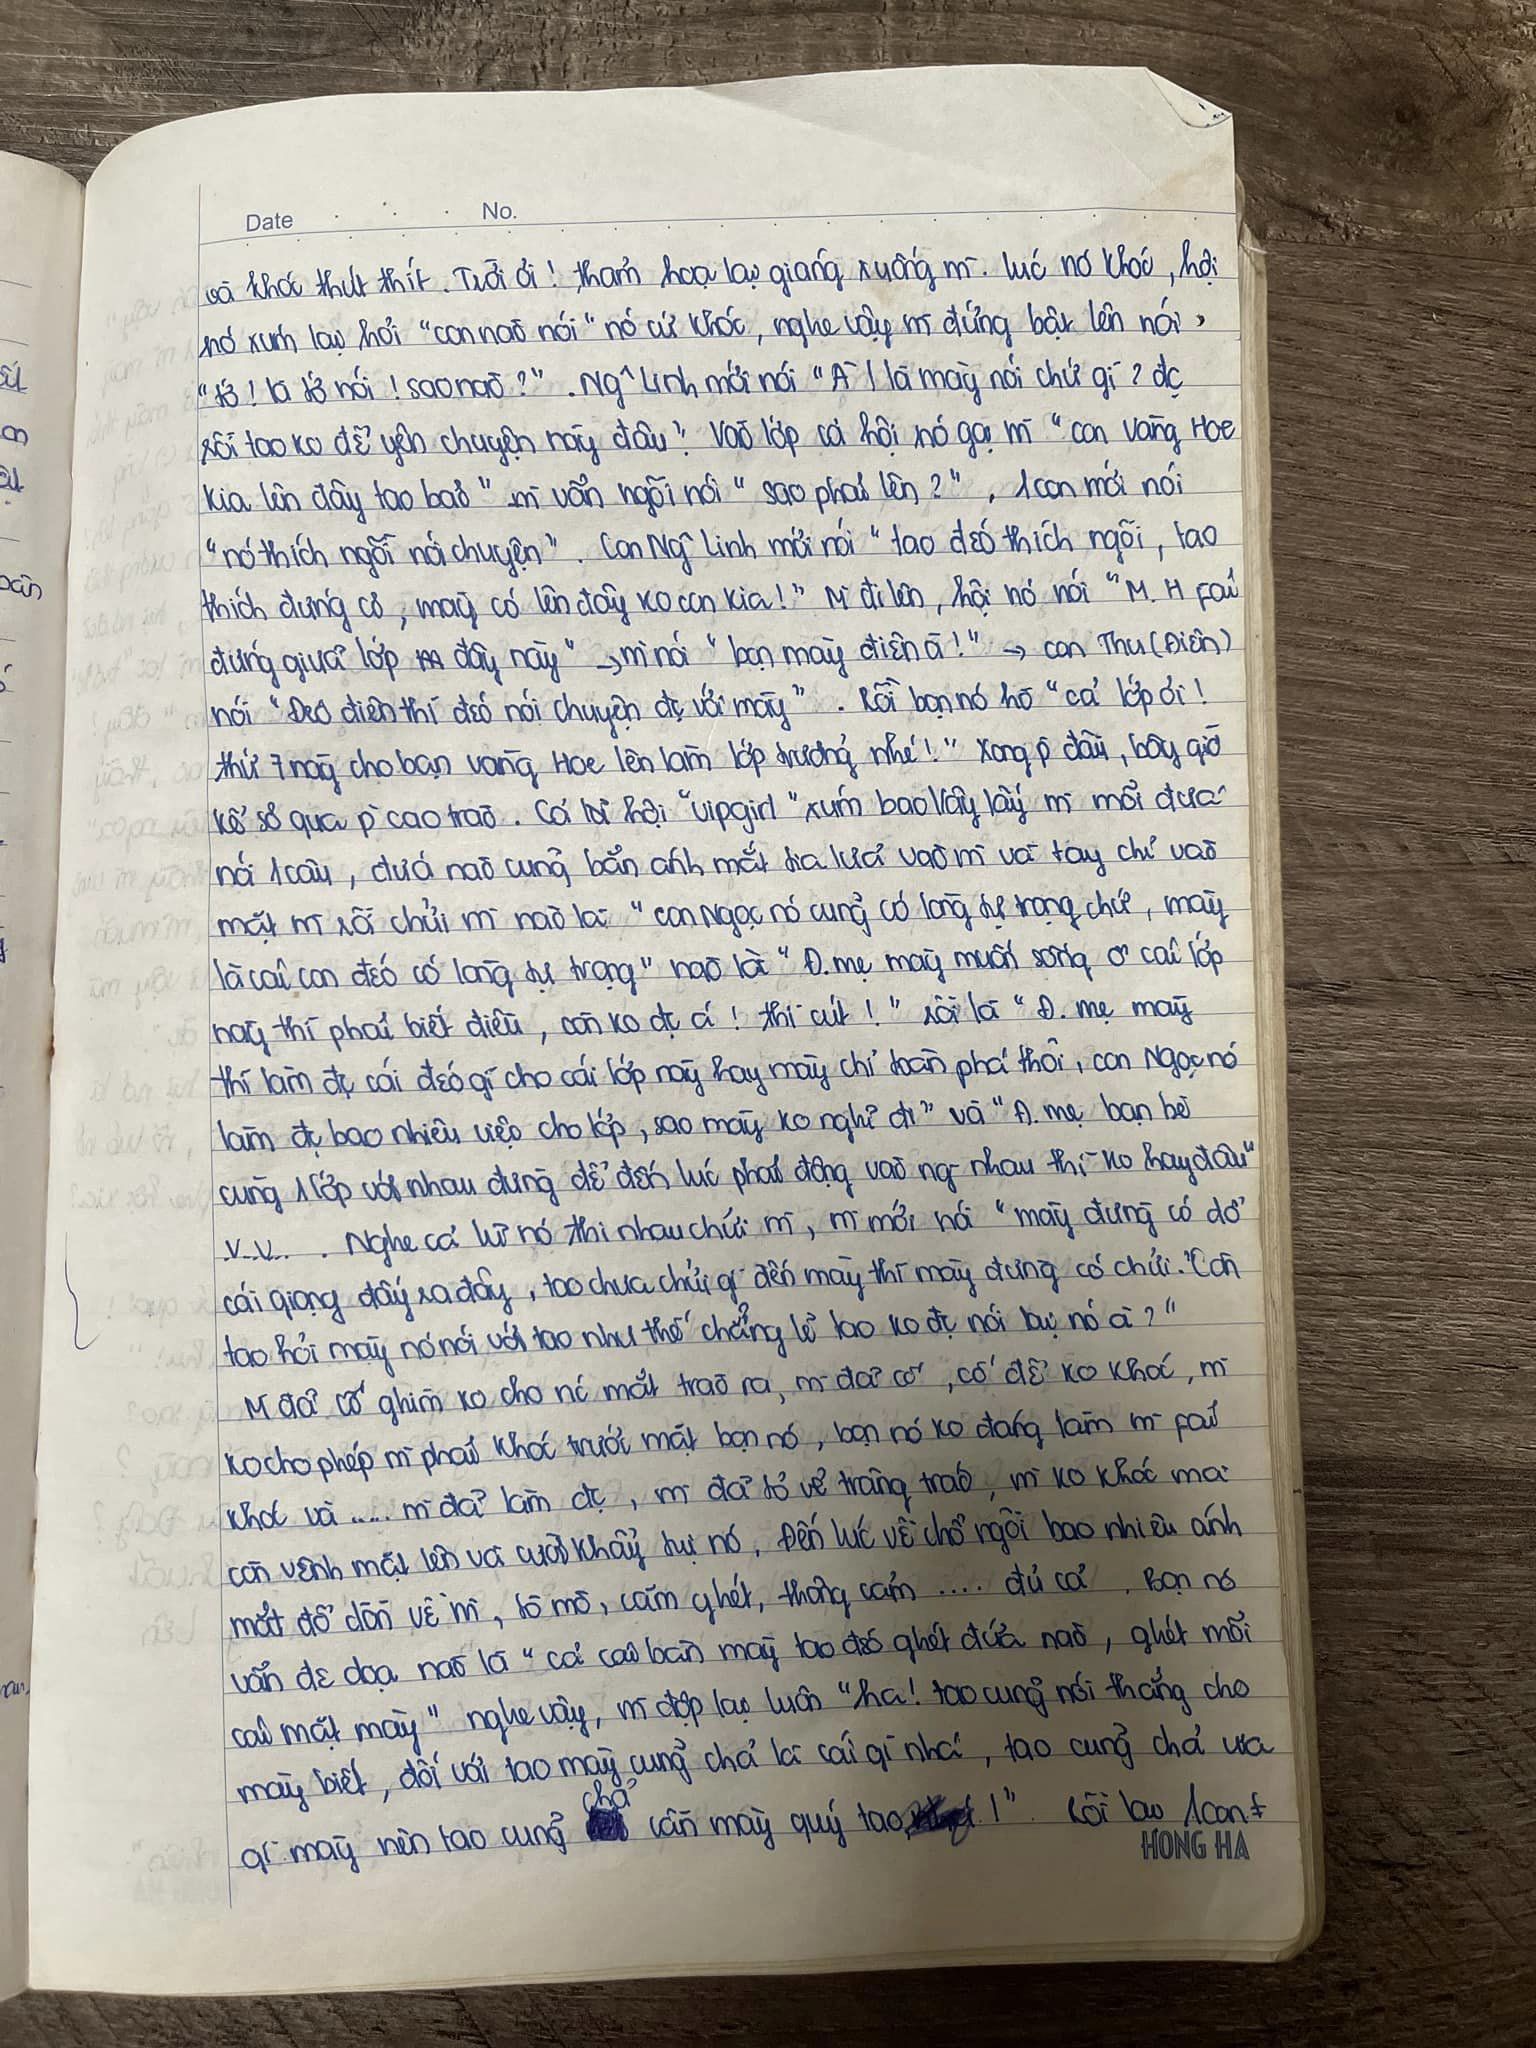 Date No.
và khóc thút thít. Trời ơi! thảm họa lại giáng xuống mì. Lúc nó khóc, hội
nó xúm lại hỏi "con nào nói" nó cứ khóc, nghe vậy mì đứng bật lên nói,
"tớ! là tớ nói! sao nào?". Ngô Linh mới nói "À! là mày nói chứ gì? đc
rồi tao ko để yên chuyện này đâu". Vào lớp cả hội nó gọi mì "con vàng Hoe
kia lên đây tao bảo" mì vẫn ngồi nói "sao phải lên?", 1 con mới nói
"nó thích ngồi nói chuyện". Con Ngô Linh mới nói "tao đéo thích ngồi, tao
thích đứng cơ, mày có lên đây ko con kia!" Mì đi lên, hội nó nói "M. H fải
đứng giữa lớp đây này" → mì nói "bọn mày điên à!" → con Thu (Điên)
nói "Đéo điên thì đéo nói chuyện đc với mày". Rồi bọn nó hò "cả lớp ơi!
thứ 7 này cho bạn vàng Hoe lên làm lớp trưởng nhé!" Xong p đầu, bây giờ
kể sơ qua p cao trào. Cả lũ hội "vipgirl" xúm bao vây lấy mì mỗi đứa
nói 1 câu, đứa nào cũng bắn ánh mắt tia lửa vào mì và tay chỉ vào
mặt mì rồi chửi mì nào là "con Ngọc nó cũng có lòng tự trọng chứ, mày
là cái con đéo có lòng tự trọng" nào là "Đ. mẹ mày muốn sống ở cái lớp
này thì phải biết điều, còn ko đc á! thì cút!" rồi là "Đ. mẹ mày
thì làm đc cái đéo gì cho cái lớp này hay mày chỉ toàn phá thôi, con Ngọc nó
làm đc bao nhiêu việc cho lớp, sao mày ko nghĩ đi" và "Đ. mẹ bạn bè
cùng 1 lớp với nhau đừng để đến lúc phải động vào ng- nhau thì ko hay đâu"
v..v... . Nghe cả lũ nó thi nhau chửi mì, mì mới nói "mày đừng có dở
cái giọng đấy ra đây, tao chưa chửi gì đến mày thì mày đừng có chửi. Còn
tao hỏi mày nó nói với tao như thế chẳng lẽ tao ko đc nói lại nó à?"
M đã cố ghìm ko cho nc mắt trào ra, mì đã cố, cố để ko khóc, mì
ko cho phép mì phải khóc trước mặt bọn nó, bọn nó ko đáng làm mì fải
khóc và ..... mì đã làm đc, mì đã tỏ vẻ tràng tráo, mì ko khóc mà
còn vênh mặt lên và cười khẩy tụi nó. Đến lúc về chỗ ngồi bao nhiêu ánh
mắt đổ dồn về mì, tò mò, căm ghét, thông cảm .... đủ cả. Bọn nó
vẫn đe dọa nào là "cả cái bàn mày tao đéo ghét đứa nào, ghét mỗi
cái mặt mày" nghe vậy, mì đập lại luôn "ha! tao cũng nói thẳng cho
mày biết, đối với tao mày cũng chả là cái gì nhá, tao cũng chả ưa
gì mày nên tao cũng chả cần mày quý tao!" Rồi lại 1 con
HONG HA